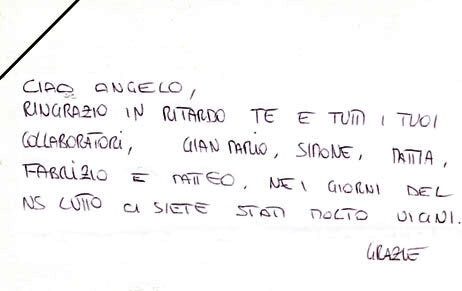 CIAO ANGELO,
RINGRAZIO IN RITARDO TE E TUTTI I TUOI
COLLABORATORI, GIAN MARIO, SIMONE, MATTIA,
FABRIZIO E MATTEO, NEI GIORNI DEL
NS LUTTO CI SIETE STATI MOLTO VICINI.
GRAZIE